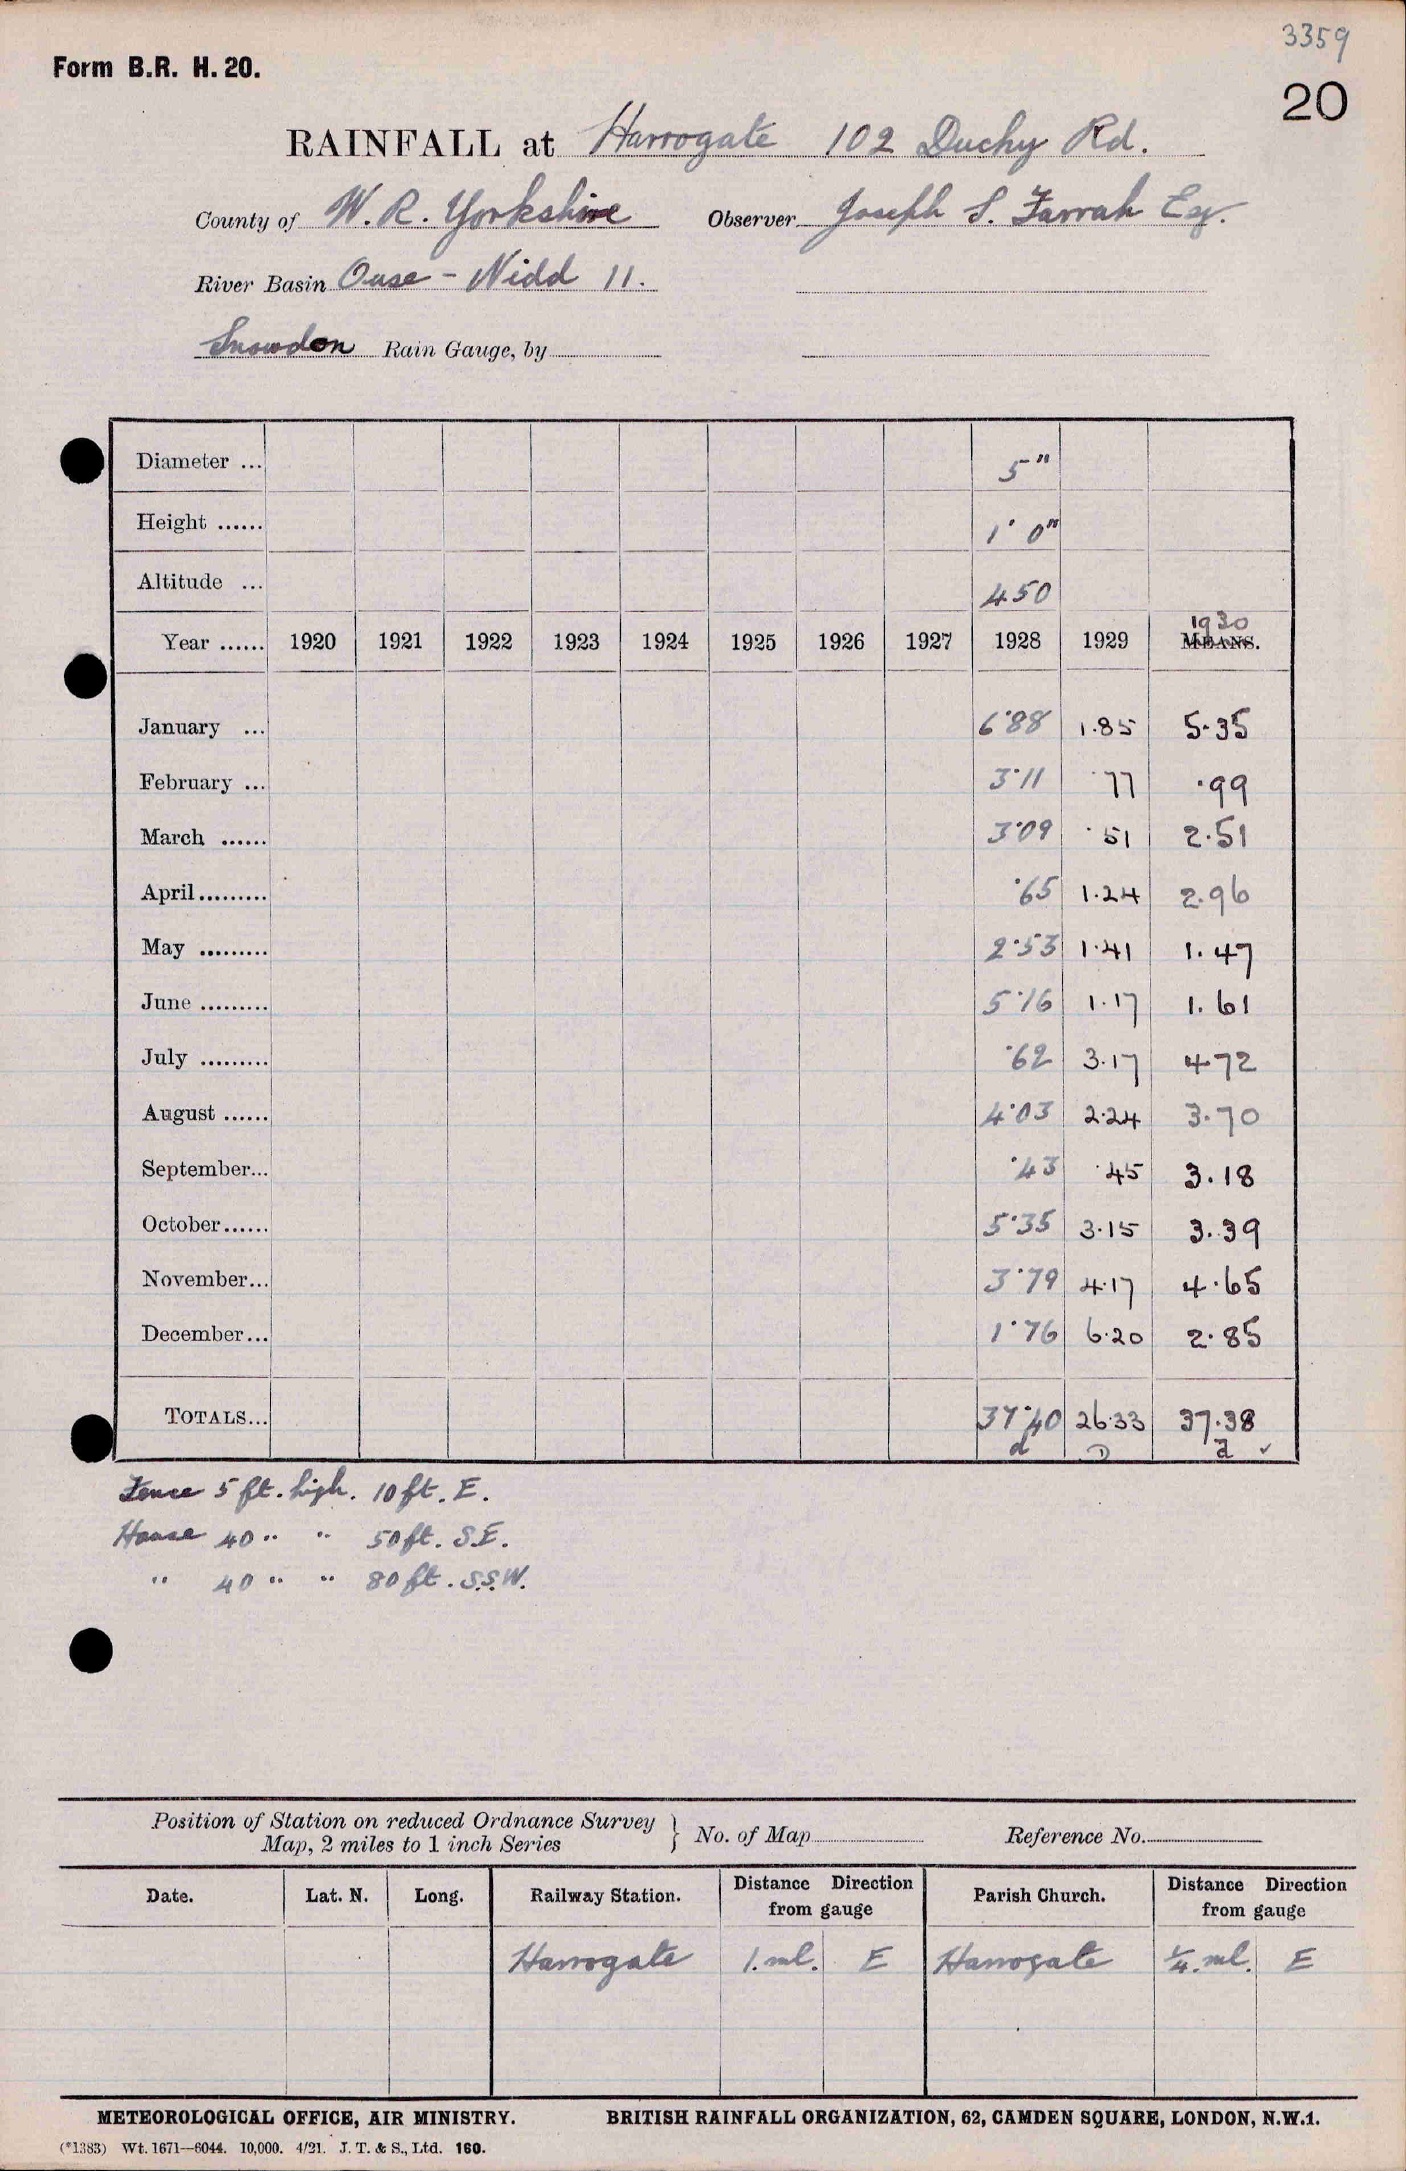 3359
Form B.R. H. 20.
20
RAINFALL at Harrogate 102 Duchy Rd.
County of W. R. Yorkshire Observer Joseph S. Farrah Esq.
River Basin Ouse - Nidd 11.
Snowdon Rain Gauge, by
Diameter ... 5"
Height ...... 1' 0"
Altitude ... 450
1930
Year ...... 1920 1921 1922 1923 1924 1925 1926 1927 1928 1929 MEANS.
January ... 6·88 1.85 5.35
February ... 3·11 ·77 ·99
March ...... 3·09 ·51 2.51
April......... ·65 1.24 2.96
May ......... 2·53 1.41 1.47
June ......... 5·16 1.17 1.61
July ......... ·62 3.17 4 72
August ...... 4·03 2.24 3.70
September... ·43 ·45 3.18
October...... 5·35 3.15 3.39
November... 3·79 4.17 4.65
December... 1·76 6.20 2.85
TOTALS... 37·40 26.33 37.38
d D d ✓
Fence 5 ft. high. 10 ft. E.
House 40 " " 50 ft. S.E.
" 40 " " 80 ft. S.S.W.
Position of Station on reduced Ordnance Survey
Map, 2 miles to 1 inch Series } No. of Map Reference No.
Date. Lat. N. Long. Railway Station. Distance Direction from gauge Parish Church. Distance Direction from gauge
Harrogate 1. ml. E Harrogate ¼. ml. E
METEOROLOGICAL OFFICE, AIR MINISTRY. BRITISH RAINFALL ORGANIZATION, 62, CAMDEN SQUARE, LONDON, N.W.1.
(*1383) Wt. 1671—6044. 10,000. 4/21. J. T. & S., Ltd. 160.